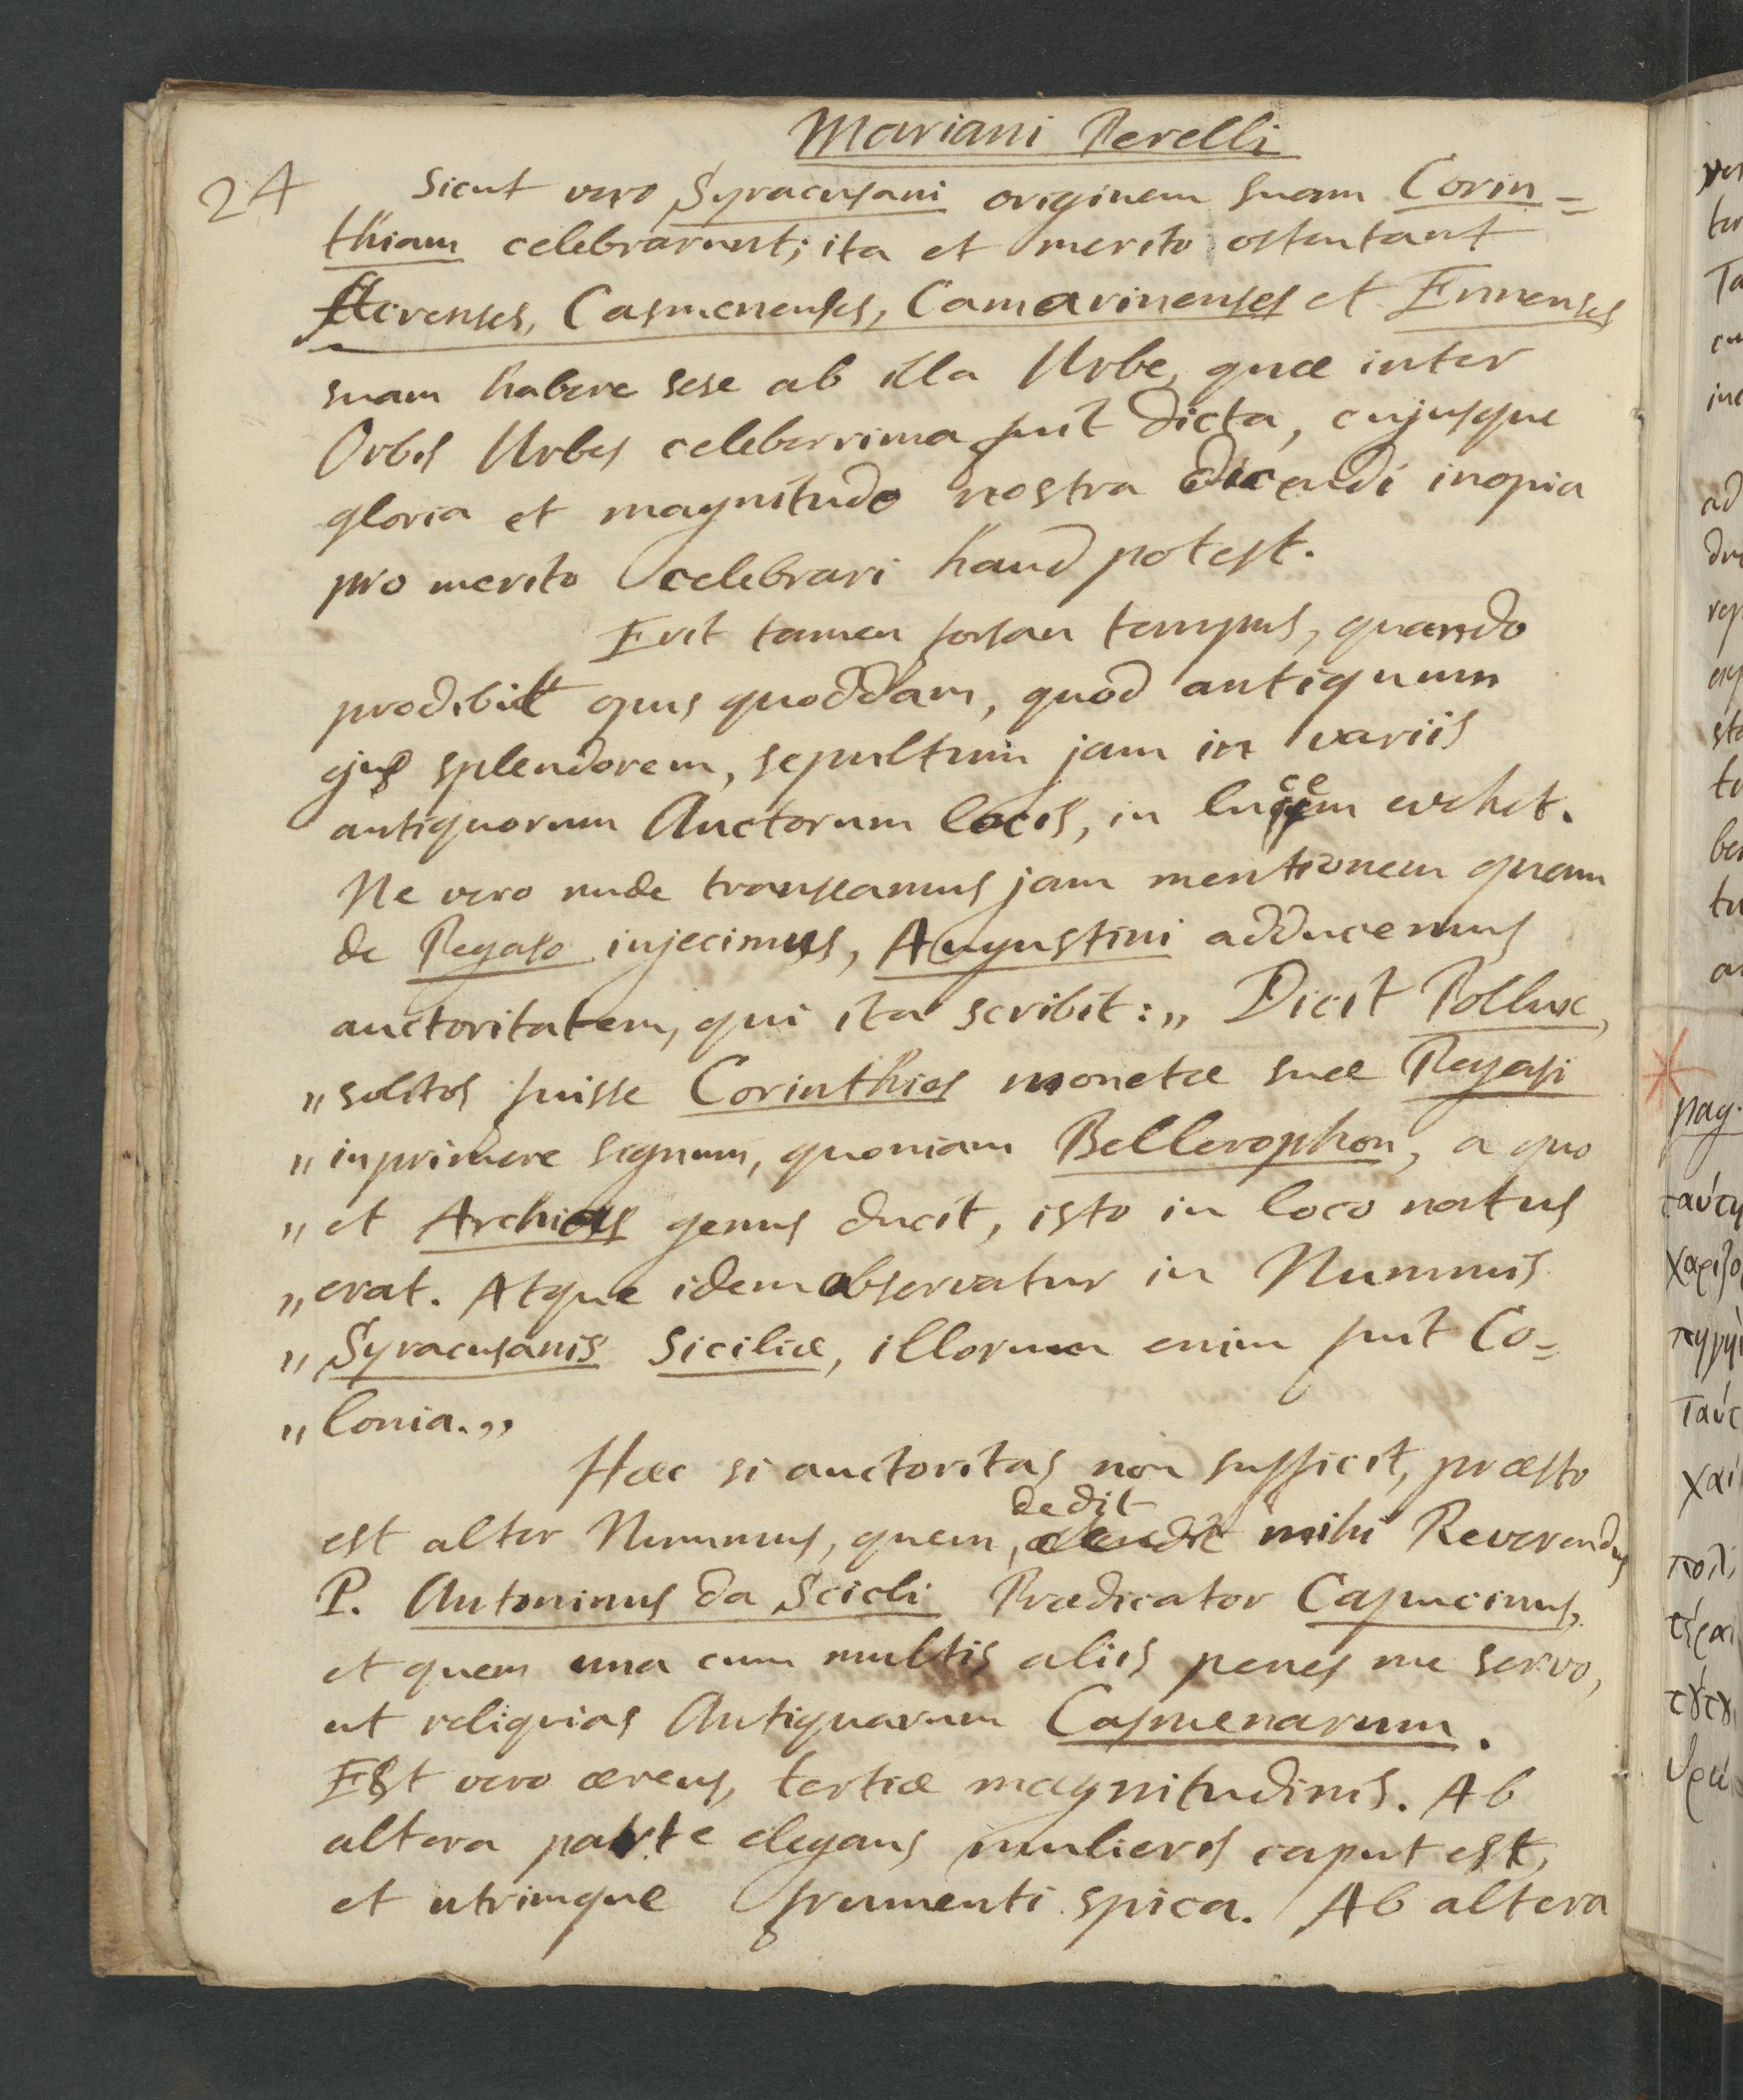 Mariani Perelli
24
Sicut vero Syracusani originem suam Corin=
thiam celebrarunt; ita et merito ostentant
Acrenses, Casmenenses, Camarinenses et Ennenses
suam habere sese ab illa Urbe, quæ inter
Orbis Urbes celeberrima fuit dicta, cujusque
gloria et magnitudo nostra dicendi inopia
pro merito celebrari haud potest.
Erit tamen forsan tempus, quando
prodibit opus quoddam, quod antiquum
ejus splendorem, sepultum jam in variis
antiquorum Auctorum locis, in lucem evehet.
Ne vero nude transeamus jam mentionem quam
de Pegaso injecimus, Augustini adducemus
auctoritatem, qui ita scribit: „ Dicit Pollux,
„ solitos fuisse Corinthios monetæ suæ Pegasi
„ inprimere signum, quoniam Bellerophon, a quo
„ et Archias genus ducit, isto in loco natus
„ erat. Atque idem observatur in Nummis
„ Syracusanis Siciliæ, illorum enim fuit Co=
„ lonia. „
Hæc si auctoritas non sufficit, præsto
est alter Nummus, quem, dedit mihi Reverendus
P. Antoninus da Scicli Prædicator Capucinus,
et quem una cum multis aliis penes me servo,
ut reliquias Antiquarum Casmenarum.
Est vero æreus, tertiæ magnitudinis. Ab
altera parte elegans mulieris caput est,
et utrimque frumenti spica. Ab altera
pag.